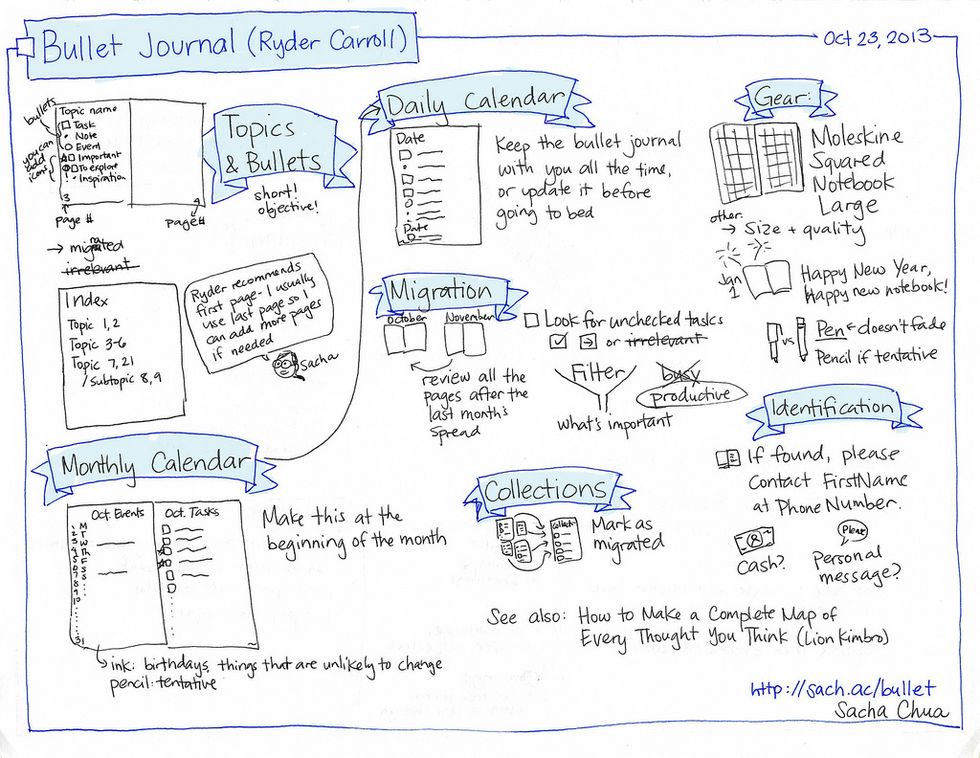 Bullet Journal (Ryder Carroll)
Oct 23, 2013
bullets
you can add icons
Topic name
Task
Note
Event
Important
To explore
Inspiration
3
page #
page #
Topics
& Bullets
short!
objective!
→ migrated
irrelevant
Index
Topic 1, 2
Topic 3-6
Topic 7, 21
/Subtopic 8, 9
Ryder recommends
first page - I usually
use last page so I
can add more pages
if needed
Sacha
Monthly Calendar
Oct. Events
Oct. Tasks
1 M
2 T
3 W
4 Th
5 F
6 S
7 S
8
9
10
31
Make this at the
beginning of the month
ink: birthdays, things that are unlikely to change
pencil: tentative
Daily Calendar
Date
Date
Keep the bullet journal
with you all the time,
or update it before
going to bed
Migration
October
November
review all the
pages after the
last month's
spread
Look for unchecked tasks
or irrelevant
Filter
what's important
busy
productive
Collections
Collection
Mark as
migrated
Gear:
Moleskine
Squared
Notebook
Large
other:
→ Size + quality
Jan
1
Happy New Year,
Happy new notebook!
vs
Pen ← doesn't fade
Pencil if tentative
Identification
If found, please
Contact FirstName
at Phone Number.
Cash?
Please
Personal
message?
See also: How to Make a Complete Map of
Every Thought You Think (Lion Kimbro)
http://sach.ac/bullet
Sacha Chua